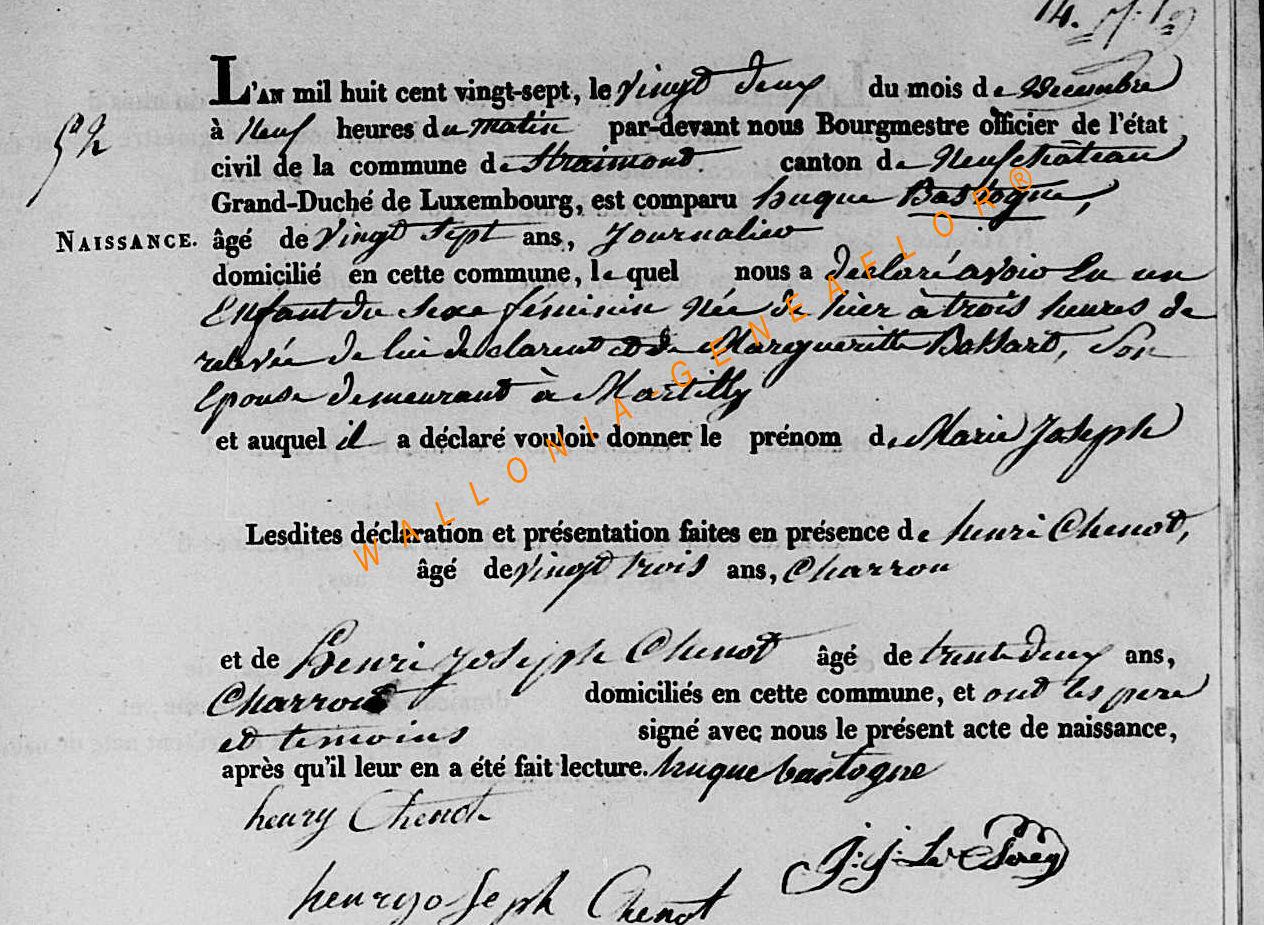 14.
L'AN mil huit cent vingt-sept, le vingt deux du mois de Décembre
à Neuf heures du matin par-devant nous Bourgmestre officier de l'état
civil de la commune de Straimont canton de Neufchâteau
Grand-Duché de Luxembourg, est comparu huque Bastogne,
NAISSANCE. âgé de vingt sept ans, Journalier
domicilié en cette commune, le quel nous a declaré avoir Eu un
Enfant du sexe féminin Née de hier à trois heures de
relevée de lui declarent et de Margueritte Bassart, Son
Epouse demeurant à Martilly
et auquel il a déclaré vouloir donner le prénom de Marie Joseph
Lesdites déclaration et présentation faites en présence de henri Chenot,
âgé de vingt trois ans, Charron
et de Henri Joseph Chenot âgé de trente deux ans,
Charron domiciliés en cette commune, et ont les pere
et temoins signé avec nous le présent acte de naissance,
après qu'il leur en a été fait lecture. huque bastogne
henry Chenot
henry joseph Chenot
WALLONIA-GENEAFLOR®